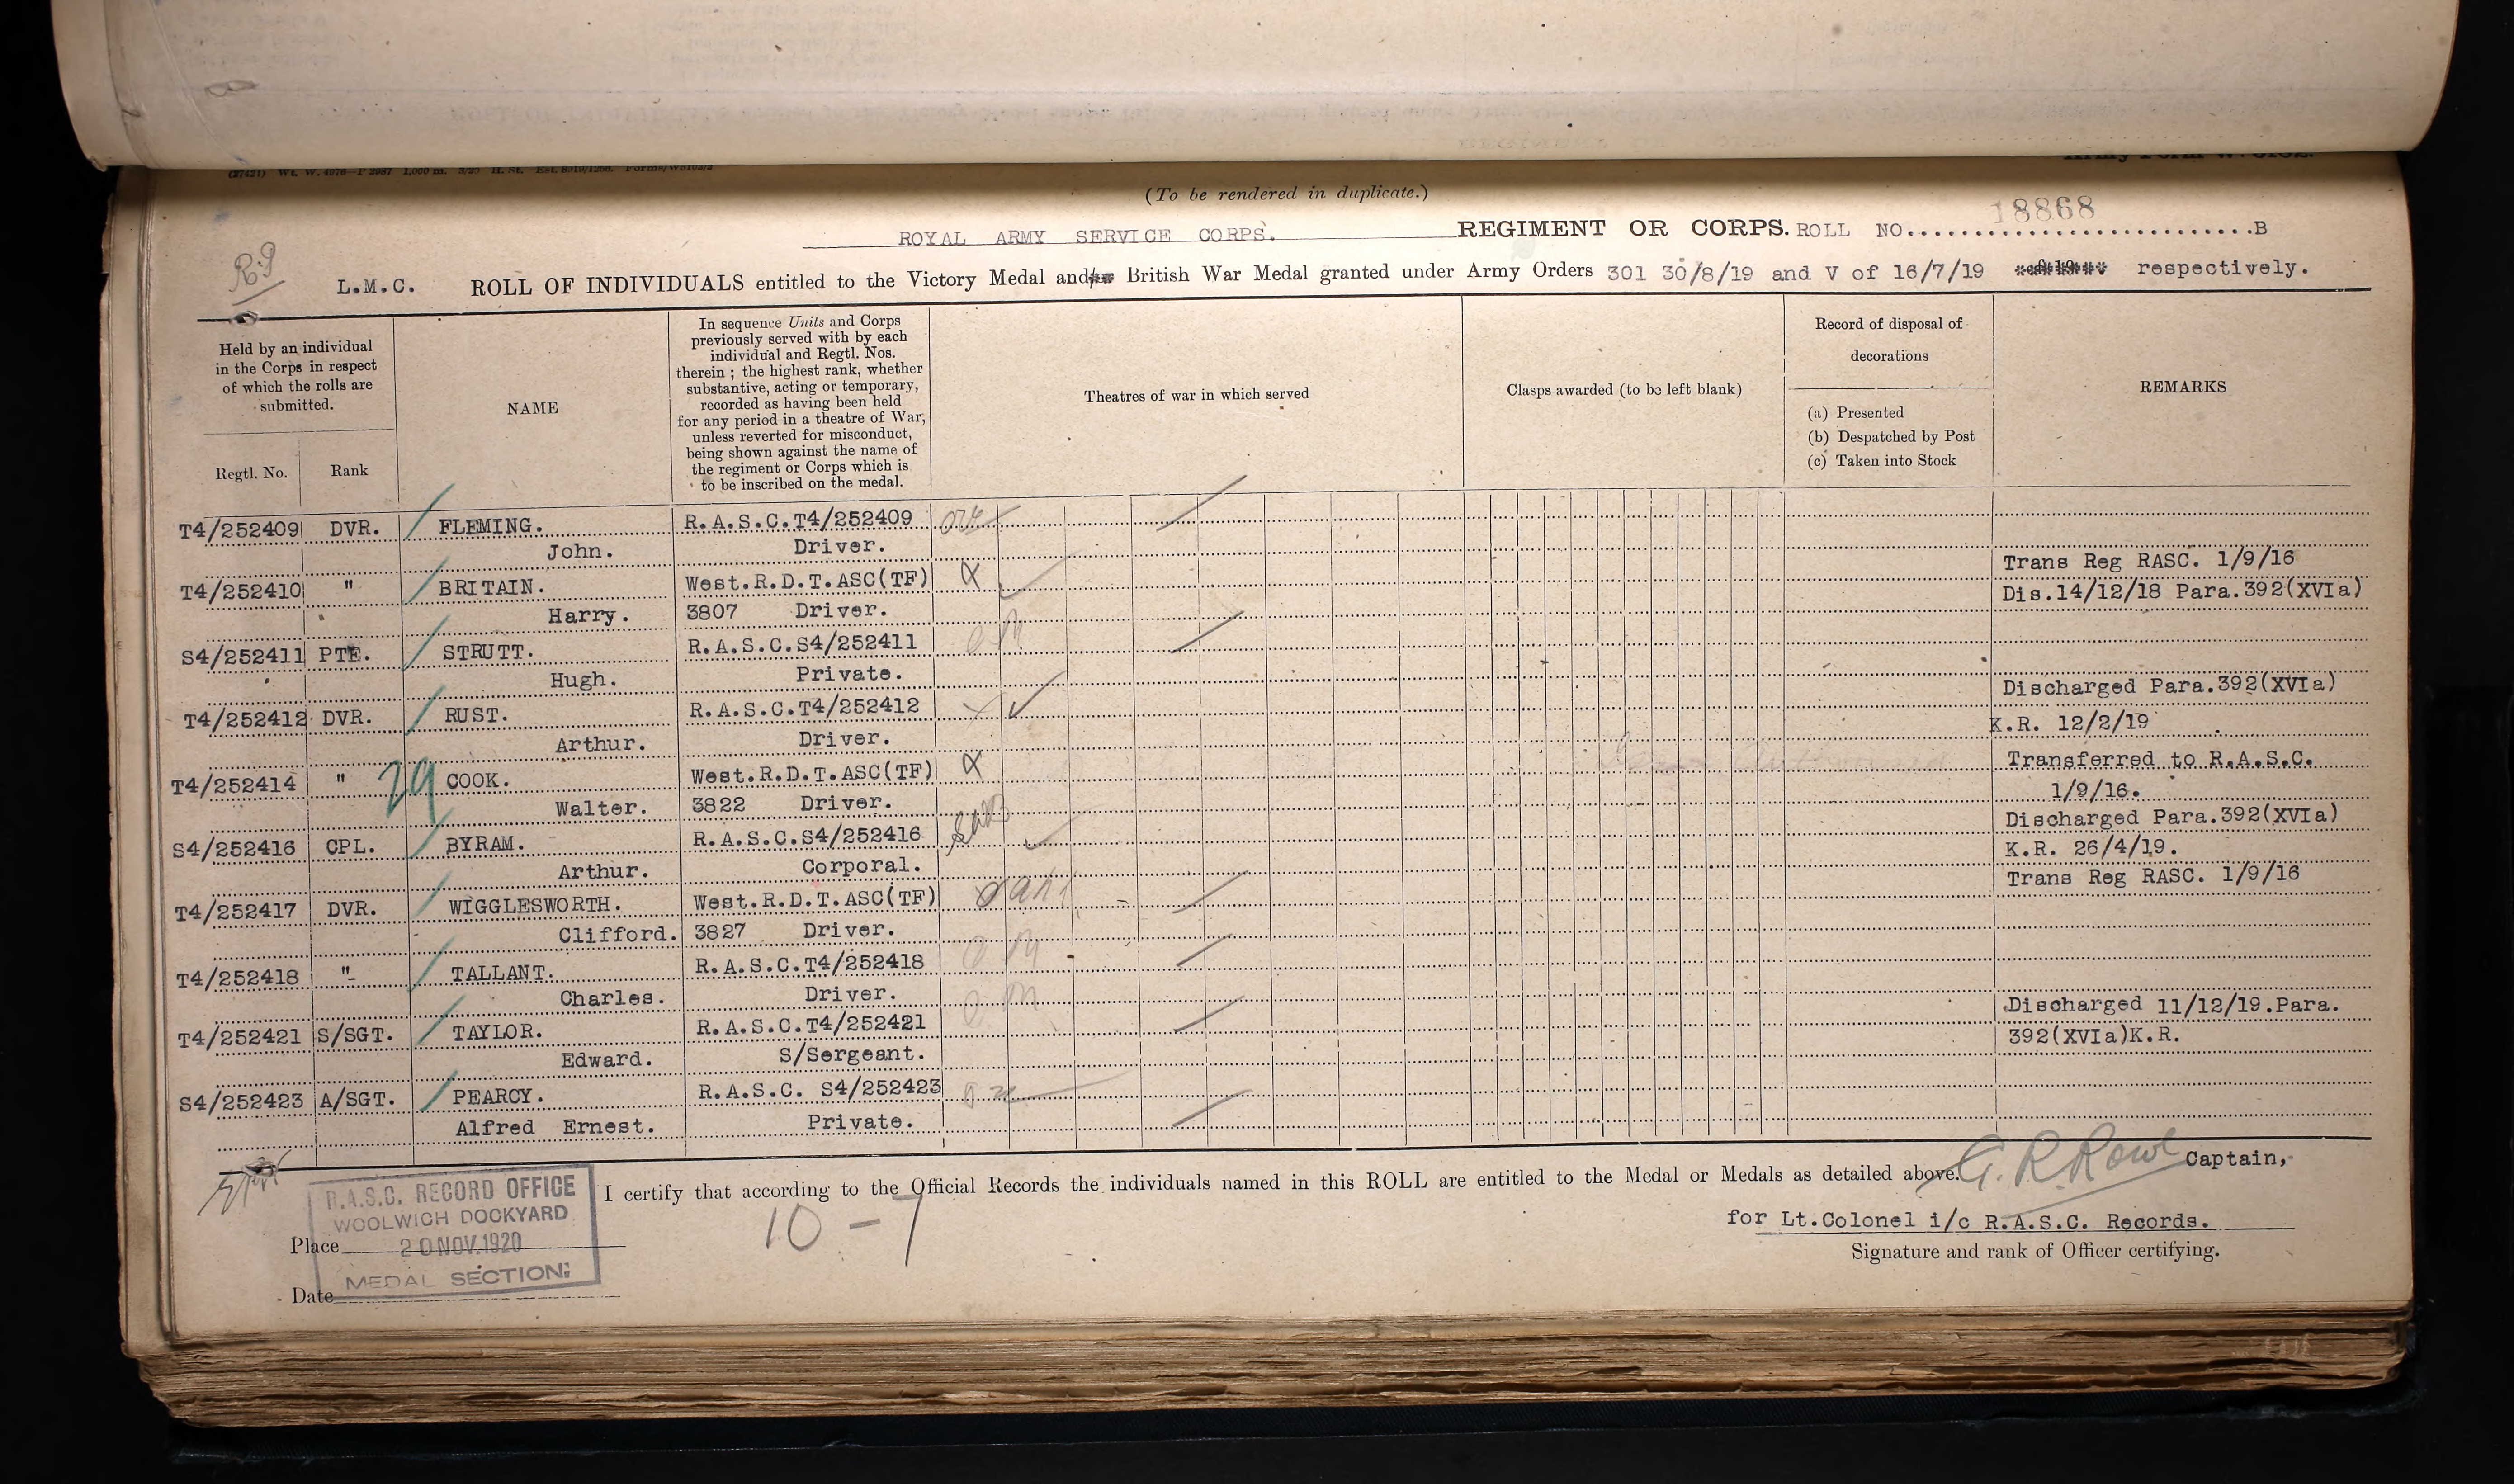 (27421) Wt. W. 4976—P 2987 1,000 m. 3/20 H. St.
(To be rendered in duplicate.)
18868
ROYAL ARMY SERVICE CORPS. REGIMENT OR CORPS. ROLL NO. B
L.M.C. ROLL OF INDIVIDUALS entitled to the Victory Medal and/or British War Medal granted under Army Orders 301 30/8/19 and V of 16/7/19 respectively.
Held by an individual
in the Corps in respect
of which the rolls are
submitted.
Regtl. No. Rank
NAME
In sequence Units and Corps
previously served with by each
individual and Regtl. Nos.
therein ; the highest rank, whether
substantive, acting or temporary,
recorded as having been held
for any period in a theatre of War,
unless reverted for misconduct,
being shown against the name of
the regiment or Corps which is
to be inscribed on the medal.
Theatres of war in which served
Clasps awarded (to be left blank)
Record of disposal of
decorations
(a) Presented
(b) Despatched by Post
(c) Taken into Stock
REMARKS
T4/252409 DVR. FLEMING. R.A.S.C.T4/252409
John. Driver.
Trans Reg RASC. 1/9/16
T4/252410 " BRITAIN. West.R.D.T.ASC(TF) Dis.14/12/18 Para.392(XVIa)
Harry. 3807 Driver.
S4/252411 PTE. STRUTT. R.A.S.C.S4/252411
Hugh. Private.
Discharged Para.392(XVIa)
T4/252412 DVR. RUST. R.A.S.C.T4/252412 K.R. 12/2/19
Arthur. Driver.
Transferred to R.A.S.C.
T4/252414 " 29 COOK. West.R.D.T.ASC(TF) 1/9/16.
Walter. 3822 Driver.
Discharged Para.392(XVIa)
S4/252416 CPL. BYRAM. R.A.S.C.S4/252416 K.R. 26/4/19.
Arthur. Corporal.
Trans Reg RASC. 1/9/16
T4/252417 DVR. WIGGLESWORTH. West.R.D.T.ASC(TF)
Clifford. 3827 Driver.
T4/252418 " TALLANT. R.A.S.C.T4/252418
Charles. Driver.
Discharged 11/12/19.Para.
T4/252421 S/SGT. TAYLOR. R.A.S.C.T4/252421 392(XVIa)K.R.
Edward. S/Sergeant.
S4/252423 A/SGT. PEARCY. R.A.S.C. S4/252423
Alfred Ernest. Private.
I certify that according to the Official Records the individuals named in this ROLL are entitled to the Medal or Medals as detailed above. G. R. Rowe Captain,
10 - 7
for Lt.Colonel i/c R.A.S.C. Records.
Signature and rank of Officer certifying.
R.A.S.C. RECORD OFFICE
WOOLWICH DOCKYARD
Place 20 NOV.1920
MEDAL SECTION
Date